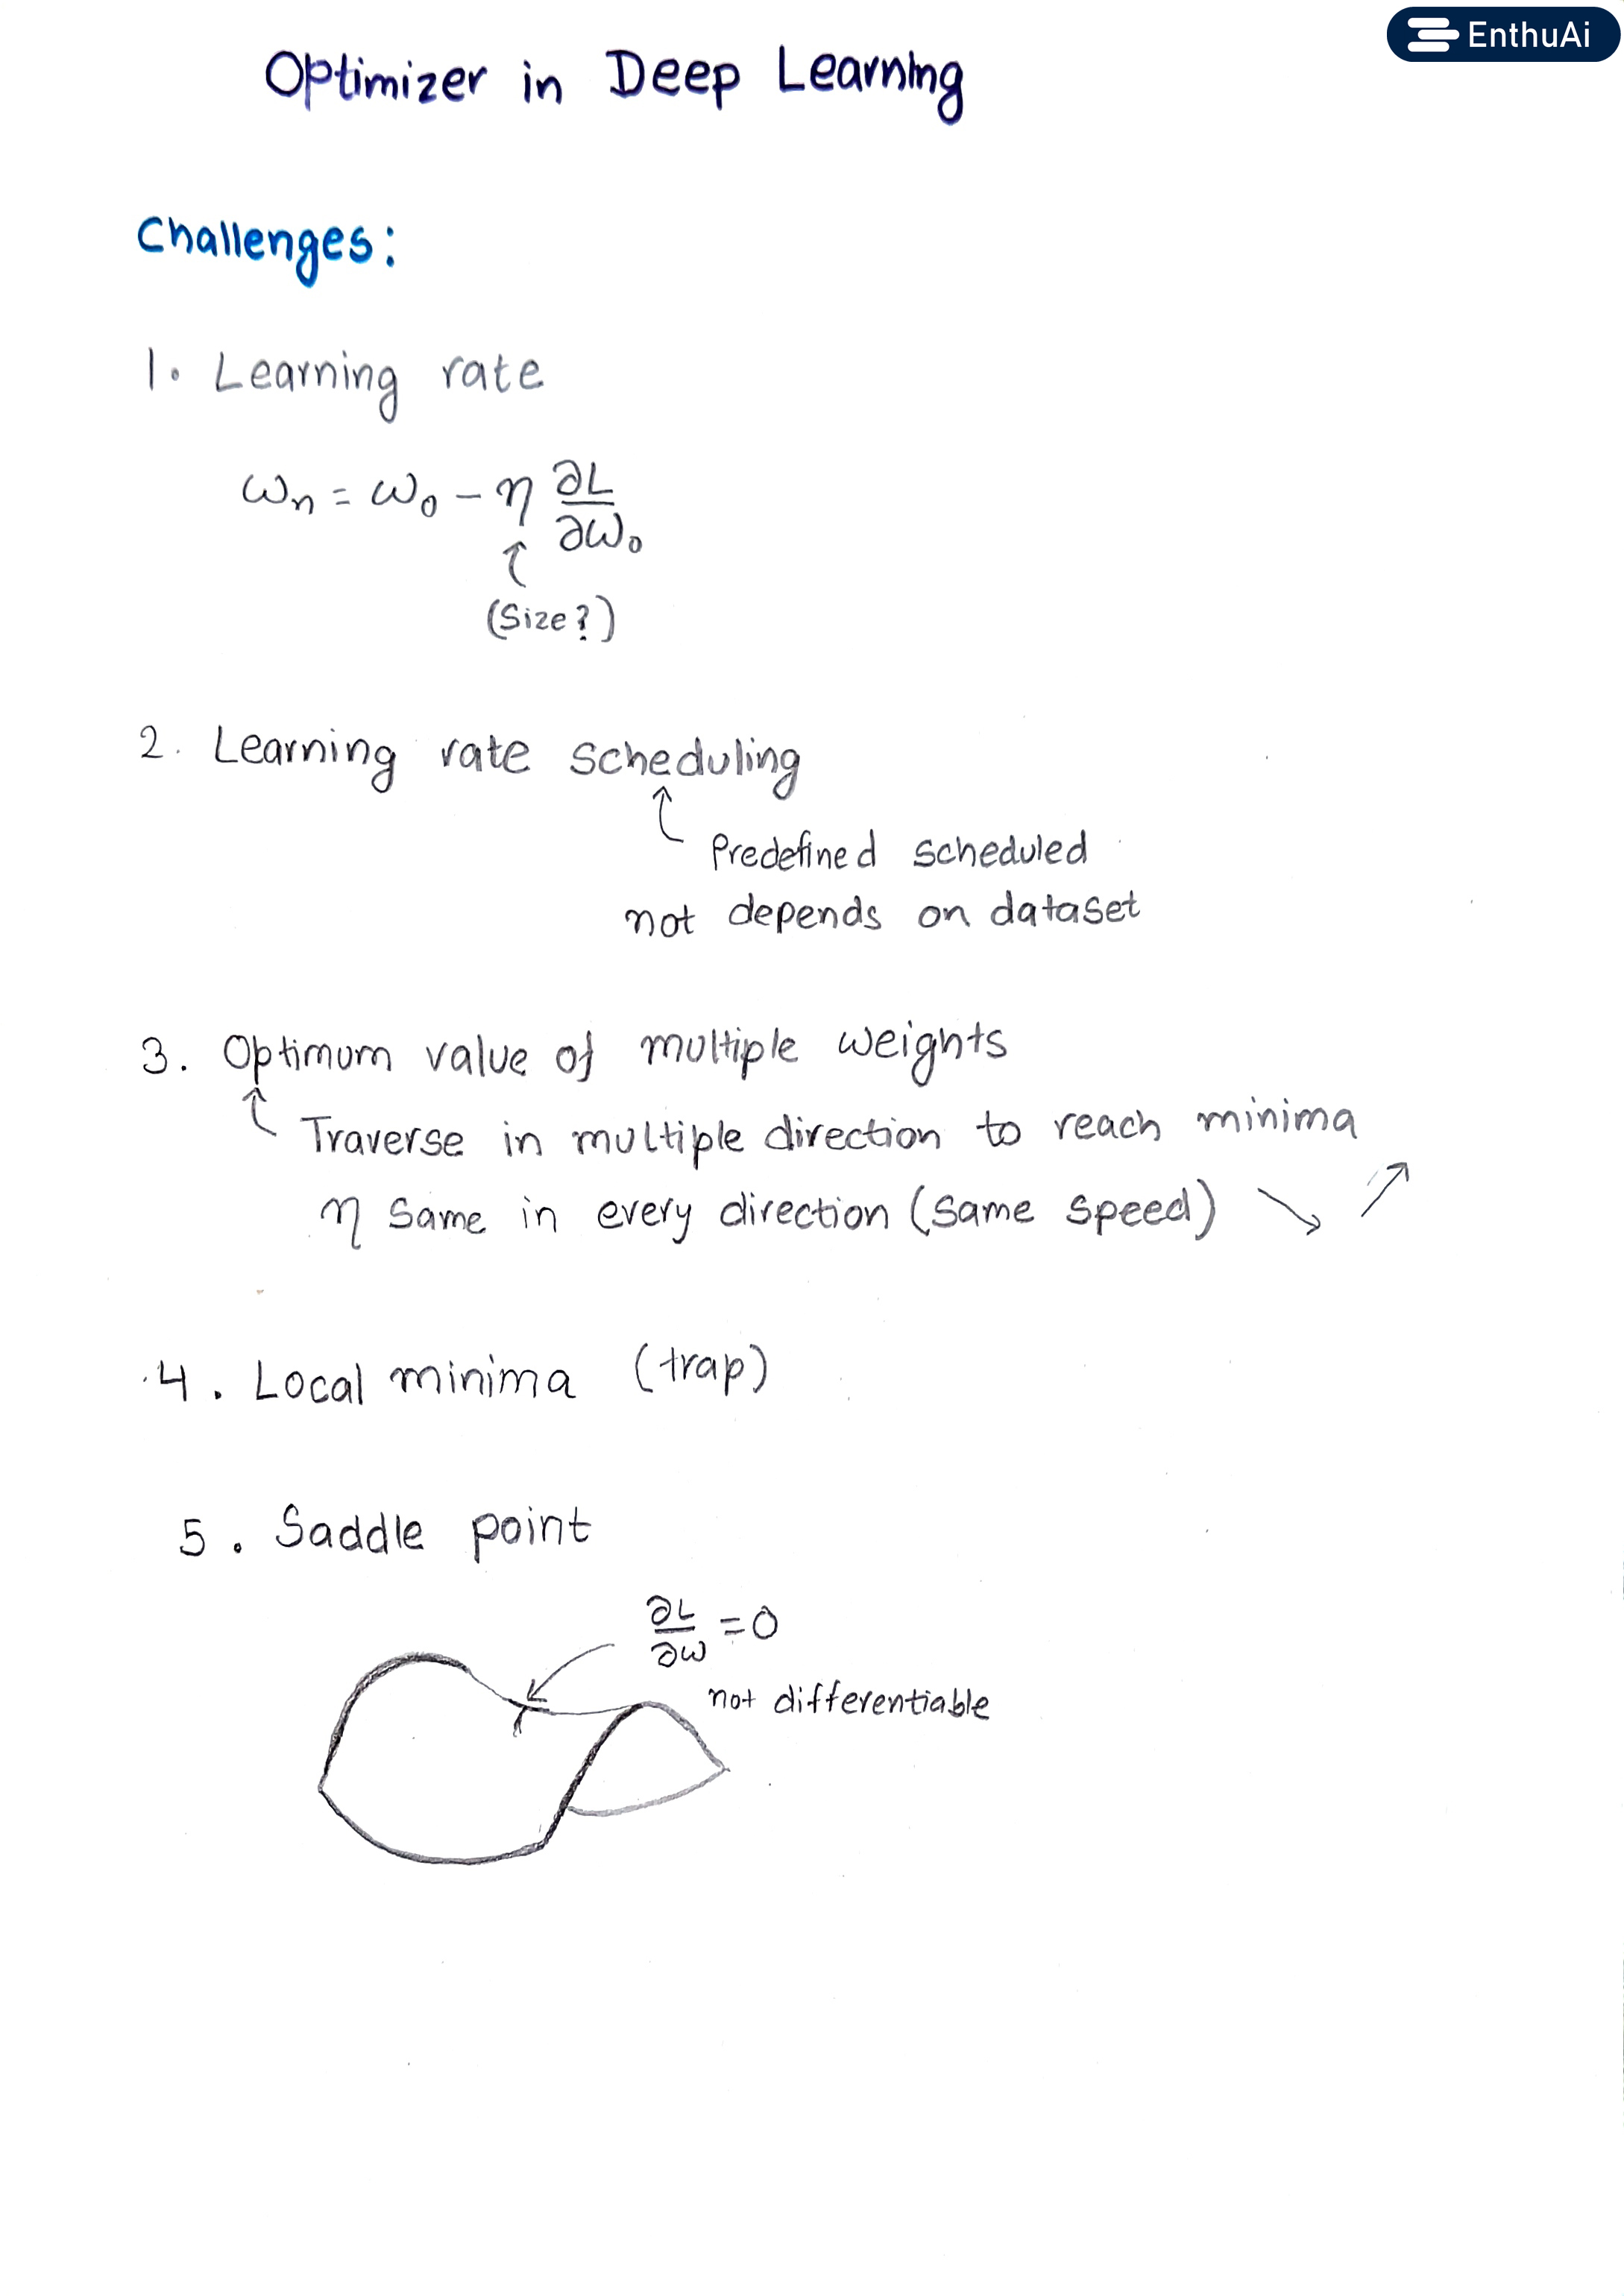 EnthuAi
Optimizer in Deep Learning
Challenges:
1. Learning rate
ωn = ω0 − η ∂L/∂ω0
↑
(Size?)
2. Learning rate scheduling
Predefined scheduled
not depends on dataset
3. Optimum value of multiple weights
Traverse in multiple direction to reach minima
η Same in every direction (Same speed) ↘ ↗
4. Local minima (trap)
5. Saddle point
∂L/∂ω = 0
not differentiable